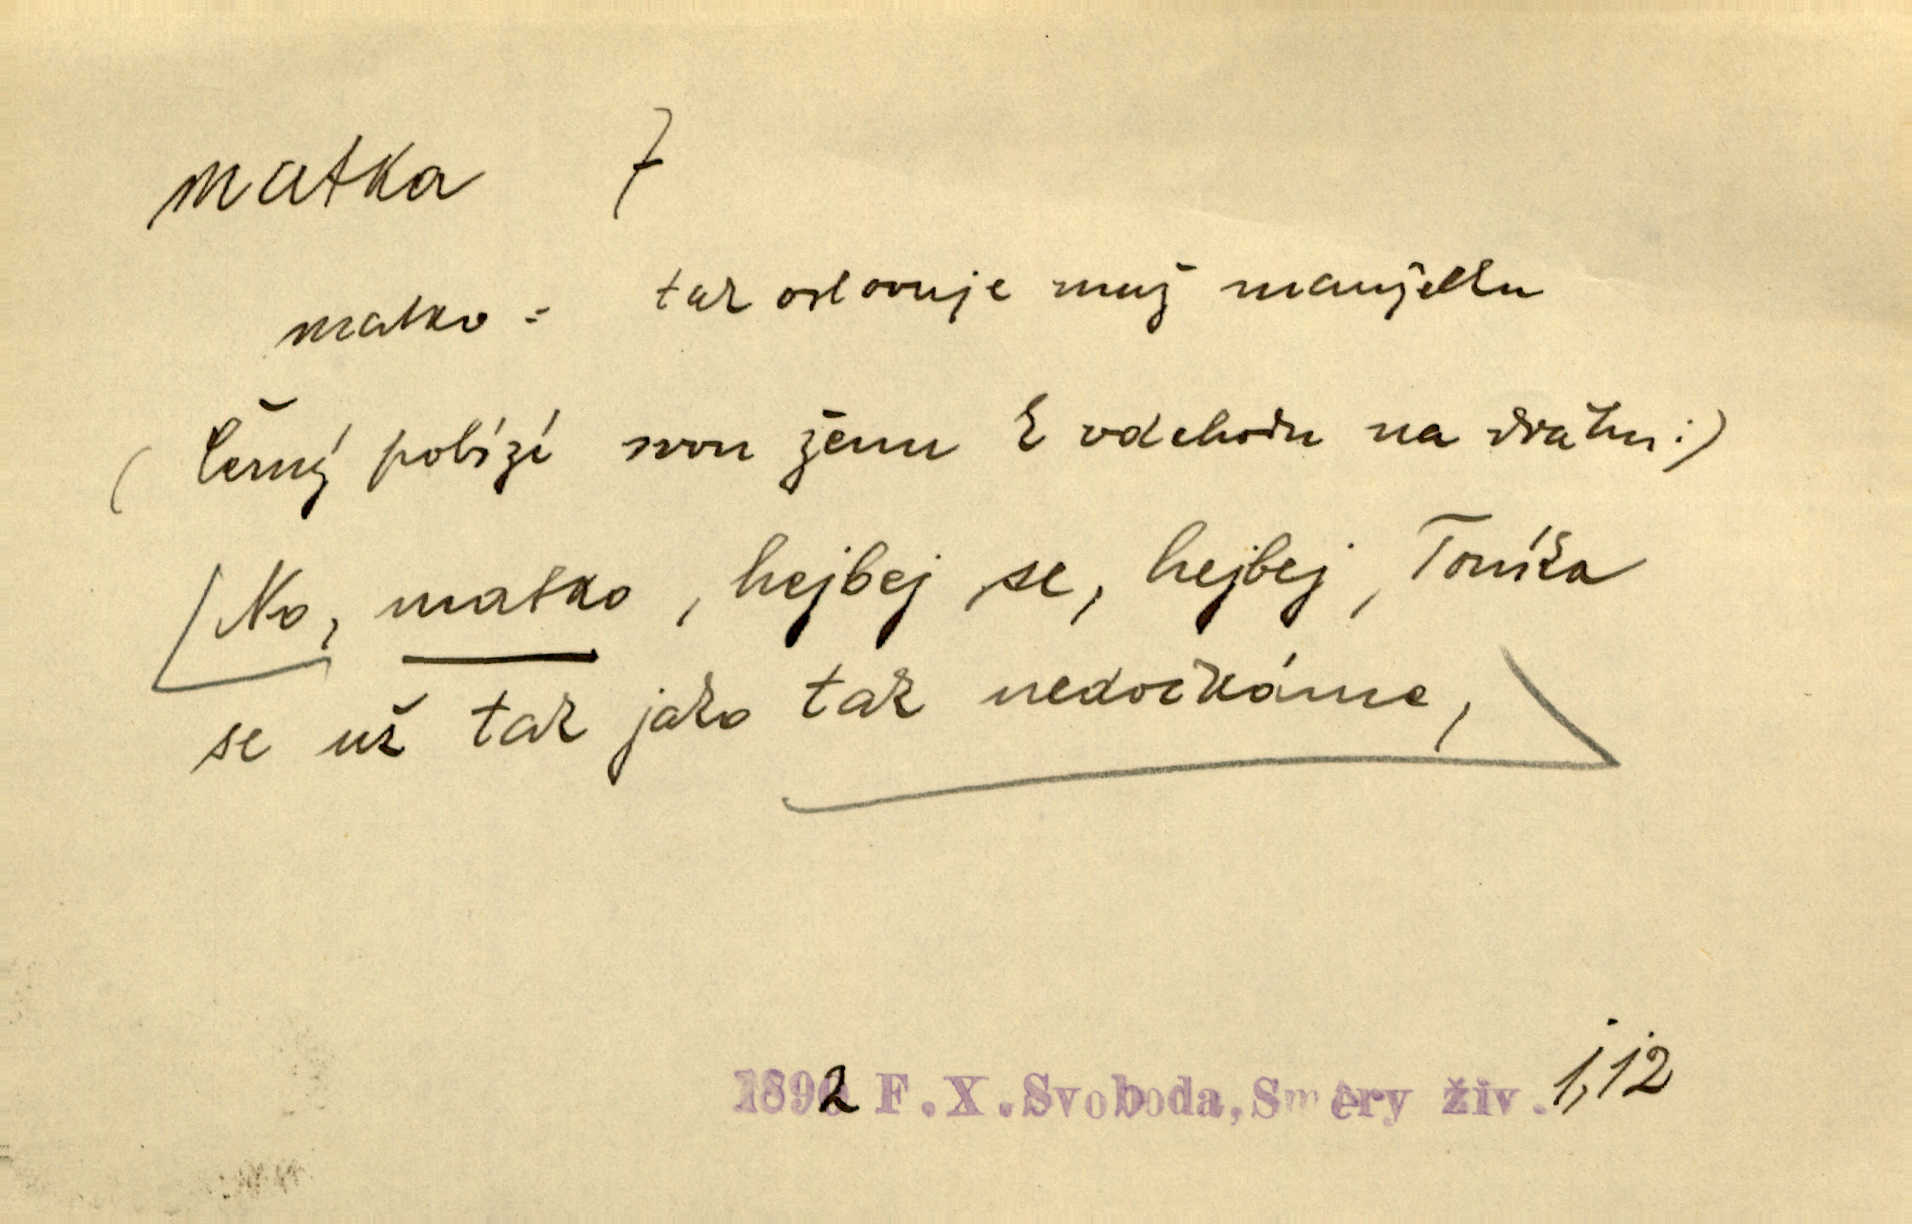 matka 7
matko = tak oslovuje muž manželku
( Černý pobízí svou ženu k odchodu na dráhu :)
No, matko, hejbej se, hejbej, Toníka
se už tak jako tak nedočkáme,
1892 F.X.Svoboda, Směry živ. 1,12